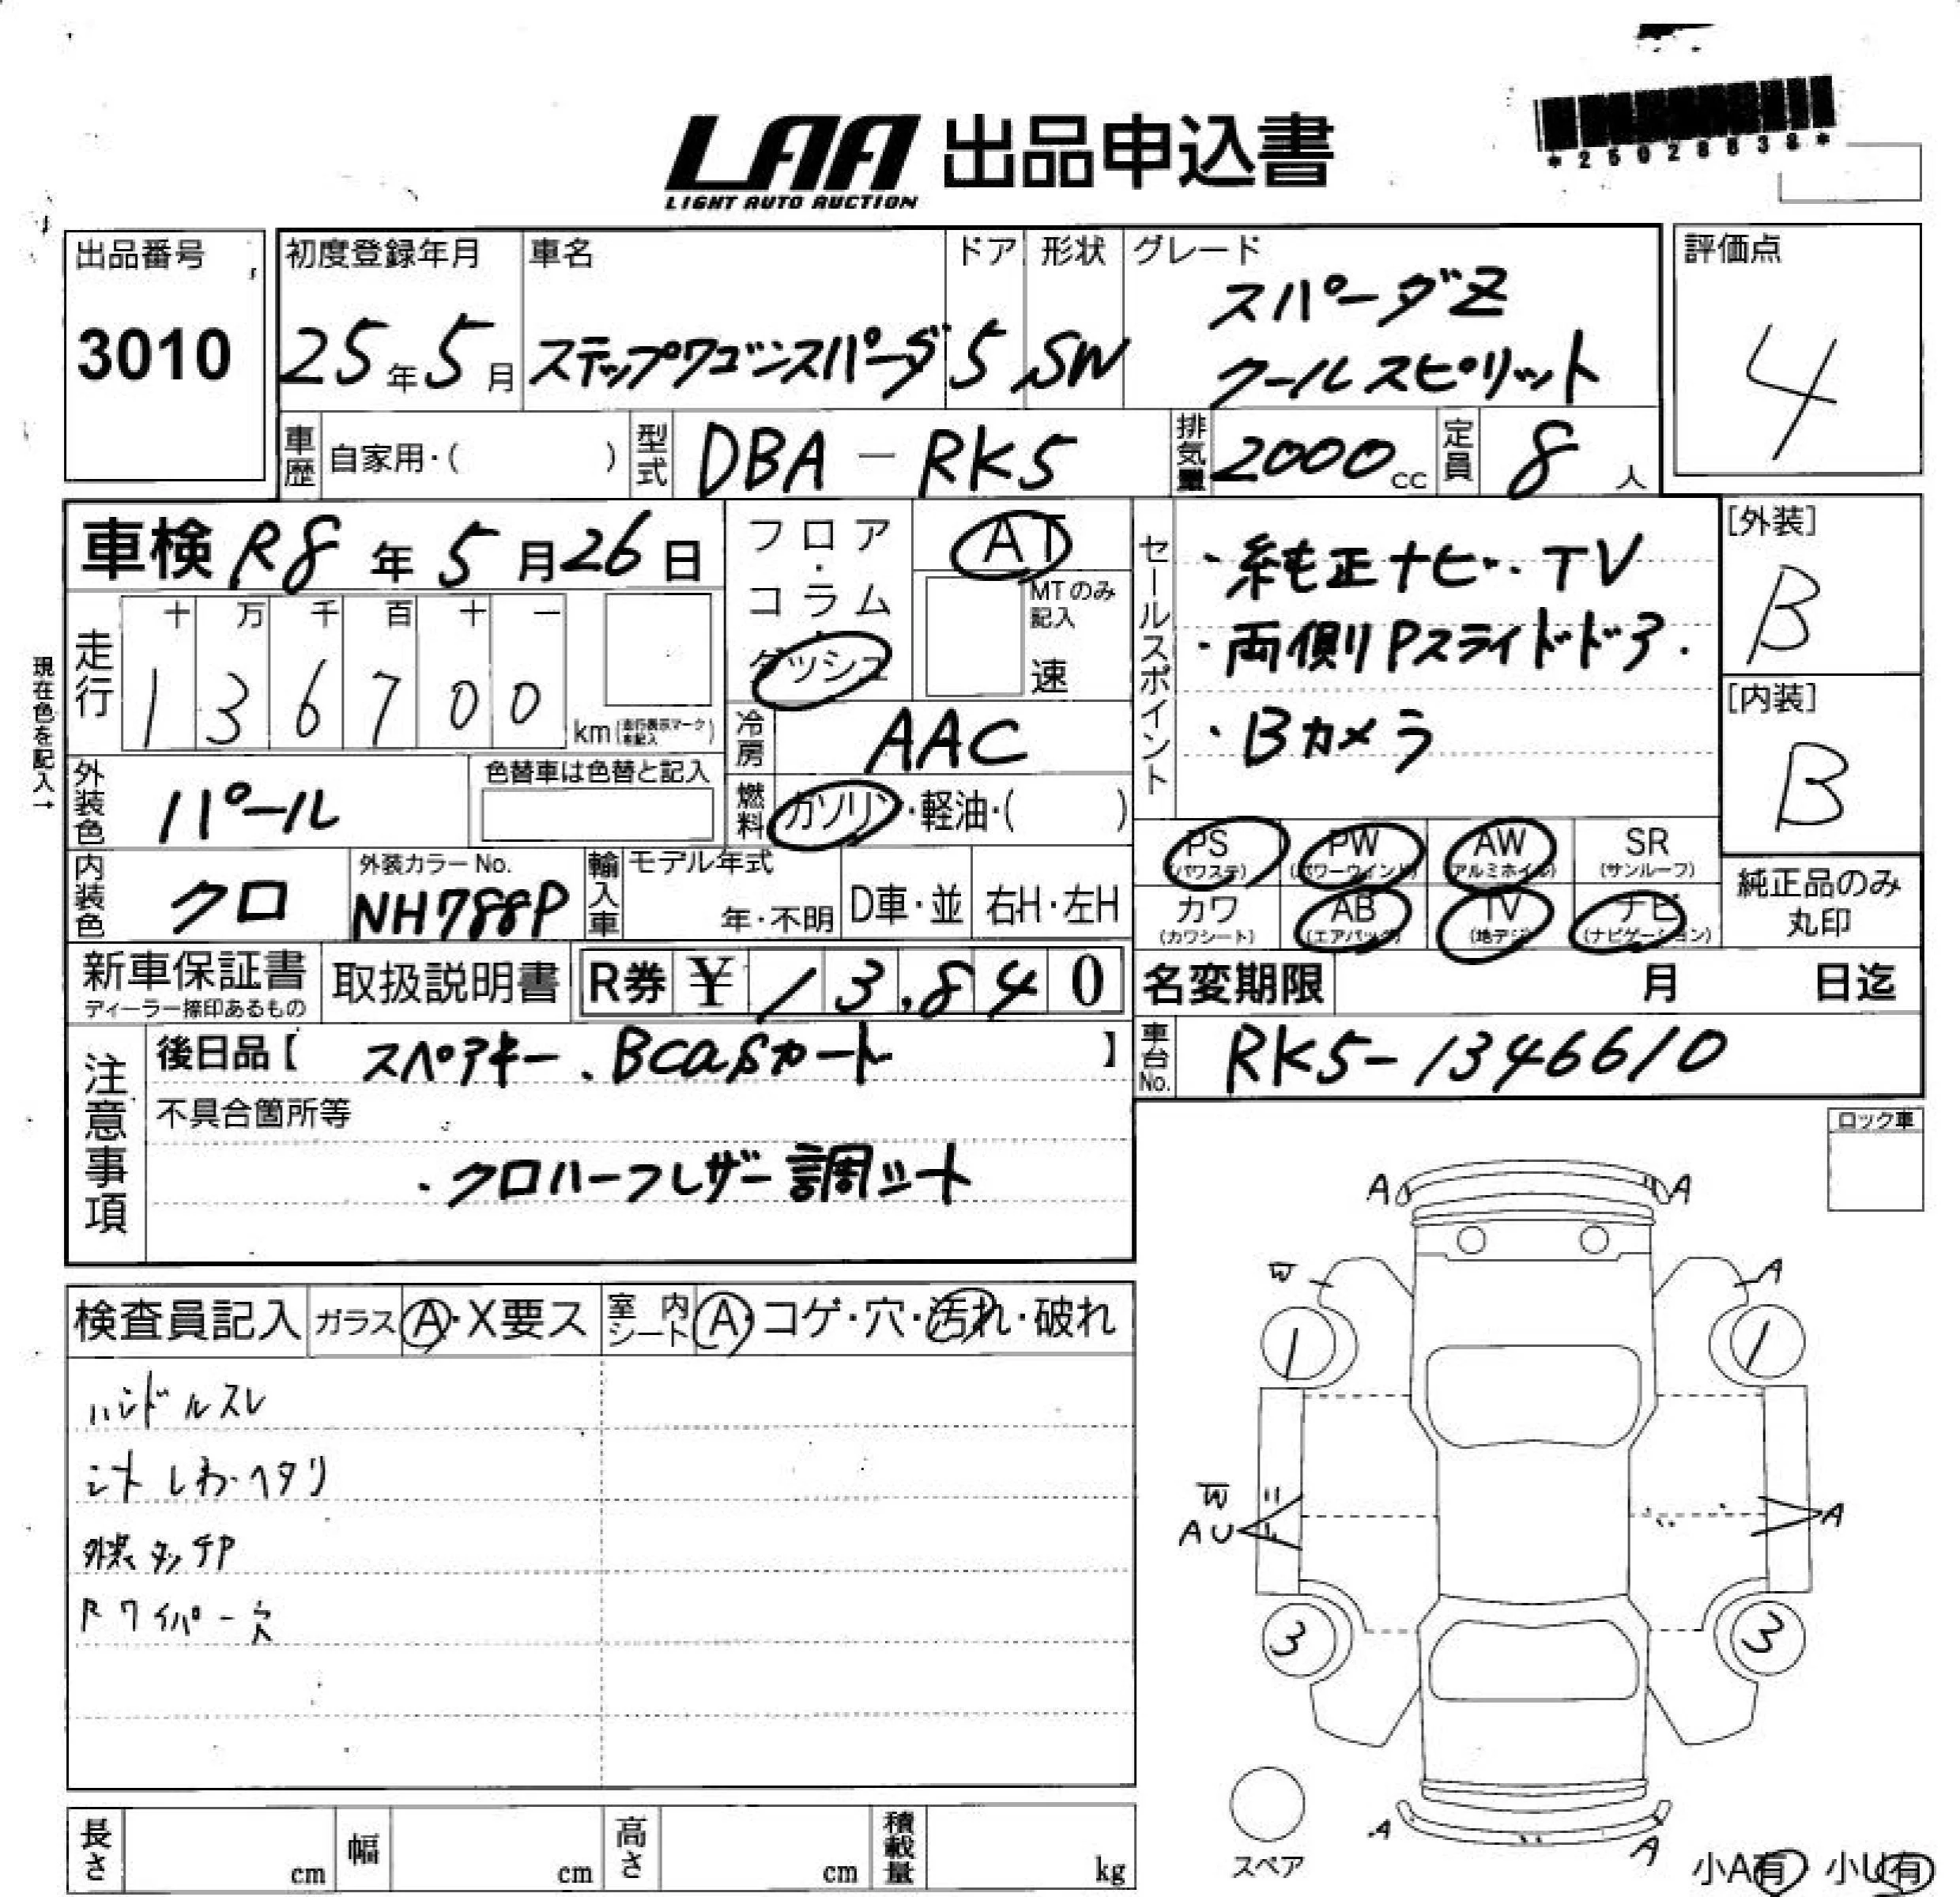 *25028638*
LAA 出品申込書
LIGHT AUTO AUCTION
出品番号
3010
初度登録年月
25年5月
車名
ステップワゴンスパーダ
ドア
5
形状
SW
グレード
スパーダZ
クールスピリット
評価点
4
車歴 自家用・( )
型式 DBA-RK5
排気量 2000cc
定員 8人
車検 R8年5月26日
フロア・コラム・ダッシュ
AT
MTのみ記入
速
セールスポイント
・純正ナビ・TV
・両側Pスライドドア.
・Bカメラ
[外装]
B
[内装]
B
現在色を記入→
走行
十 万 千 百 十 一
1 3 6 7 0 0
km(走行表示マークを記入)
冷房 AAC
外装色 パール
色替車は色替と記入
燃料 ガソリン・軽油・( )
PS (パワステ)
PW (パワーウインド)
AW (アルミホイル)
SR (サンルーフ)
カワ (カワシート)
AB (エアバッグ)
TV (地デジ)
ナビ (ナビゲーション)
純正品のみ丸印
内装色 クロ
外装カラーNo.
NH788P
輸入車 モデル年式
年・不明
D車・並
右H・左H
新車保証書
ディーラー捺印あるもの
取扱説明書
R券 ¥13,840
名変期限 月 日迄
注意事項
後日品【 スペアキー、BCaSカード 】
車台No. RK5-1346610
不具合箇所等
・クロハーフレザー調シート
ロック車
検査員記入
ガラス A・X要ス
室内シート A・コゲ・穴・汚れ・破れ
ハンドルスレ
シートしわ・ヘタリ
外装タッチP
Rワイパー穴
A A
W A
1 1
W
AU A
3 3
スペア
A
A
小A有・小U有
長さ cm
幅 cm
高さ cm
積載量 kg